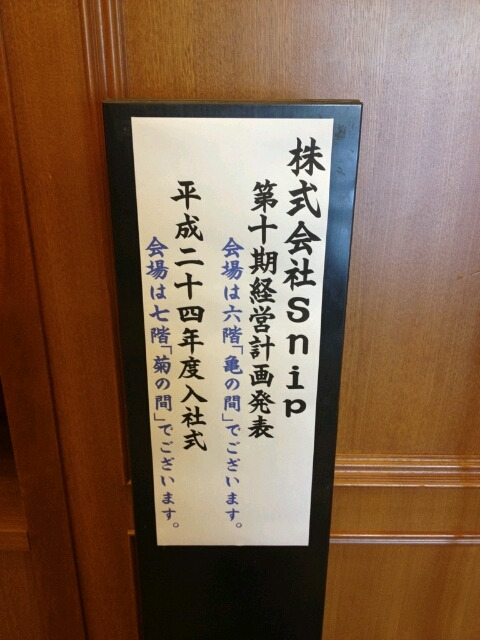 株式会社Snip
第十期経営計画発表
会場は六階「亀の間」でございます。
平成二十四年度入社式
会場は七階「菊の間」でございます。